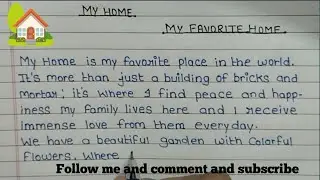 MY HOME.
MY FAVORITE HOME.
My Home is my favorite place in the world.
It's more than just a building of bricks and
mortar; it's where I find peace and happ-
iness my family lives here and I receive
immense love from them everyday.
We have a beautiful garden with Colorful
Flowers. Where
Follow me and comment and subscribe